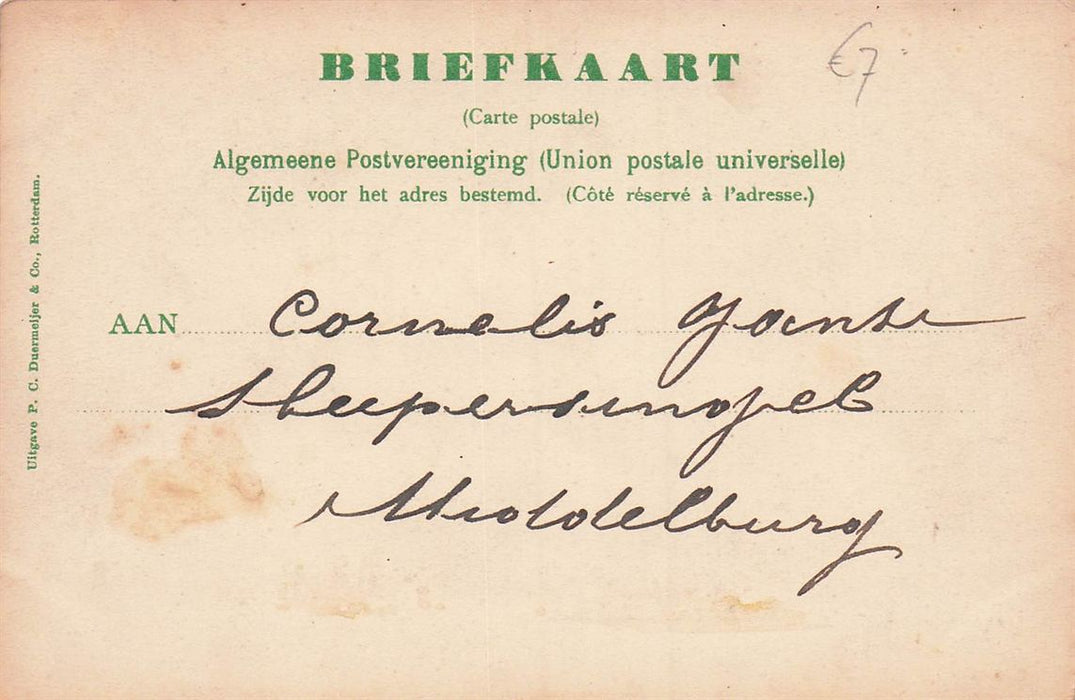 BRIEFKAART
€7
(Carte postale)
Algemeene Postvereeniging (Union postale universelle)
Zijde voor het adres bestemd. (Côté réservé à l'adresse.)
Uitgave P. C. Duermeijer & Co., Rotterdam.
AAN Cornelis Janse
Sleepersingel
Middelburg